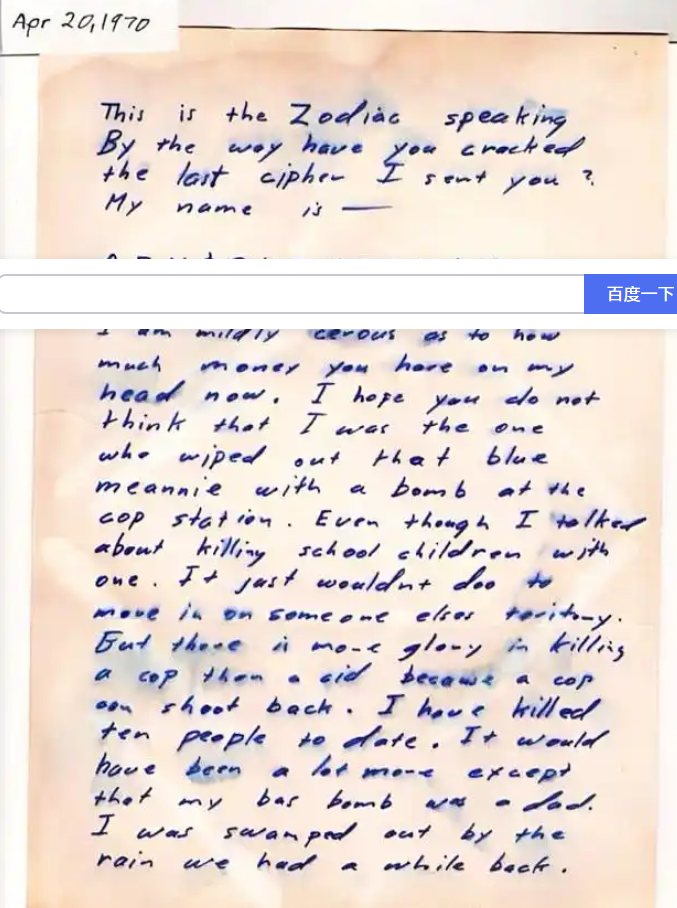 Apr 20, 1970
This is the Zodiac speaking
By the way have you cracked
the last cipher I sent you ?
My name is —
百度一下
I am mildly cerous as to how
much money you have on my
head now. I hope you do not
think that I was the one
who wiped out that blue
meannie with a bomb at the
cop station. Even though I talked
about killing school children with
one. It just wouldnt doo to
move in on someone elses teritory.
But there is more glory in killing
a cop than a cid because a cop
can shoot back. I have killed
ten people to date. It would
have been a lot more except
that my bas bomb was a dad.
I was swamped out by the
rain we had a while back.